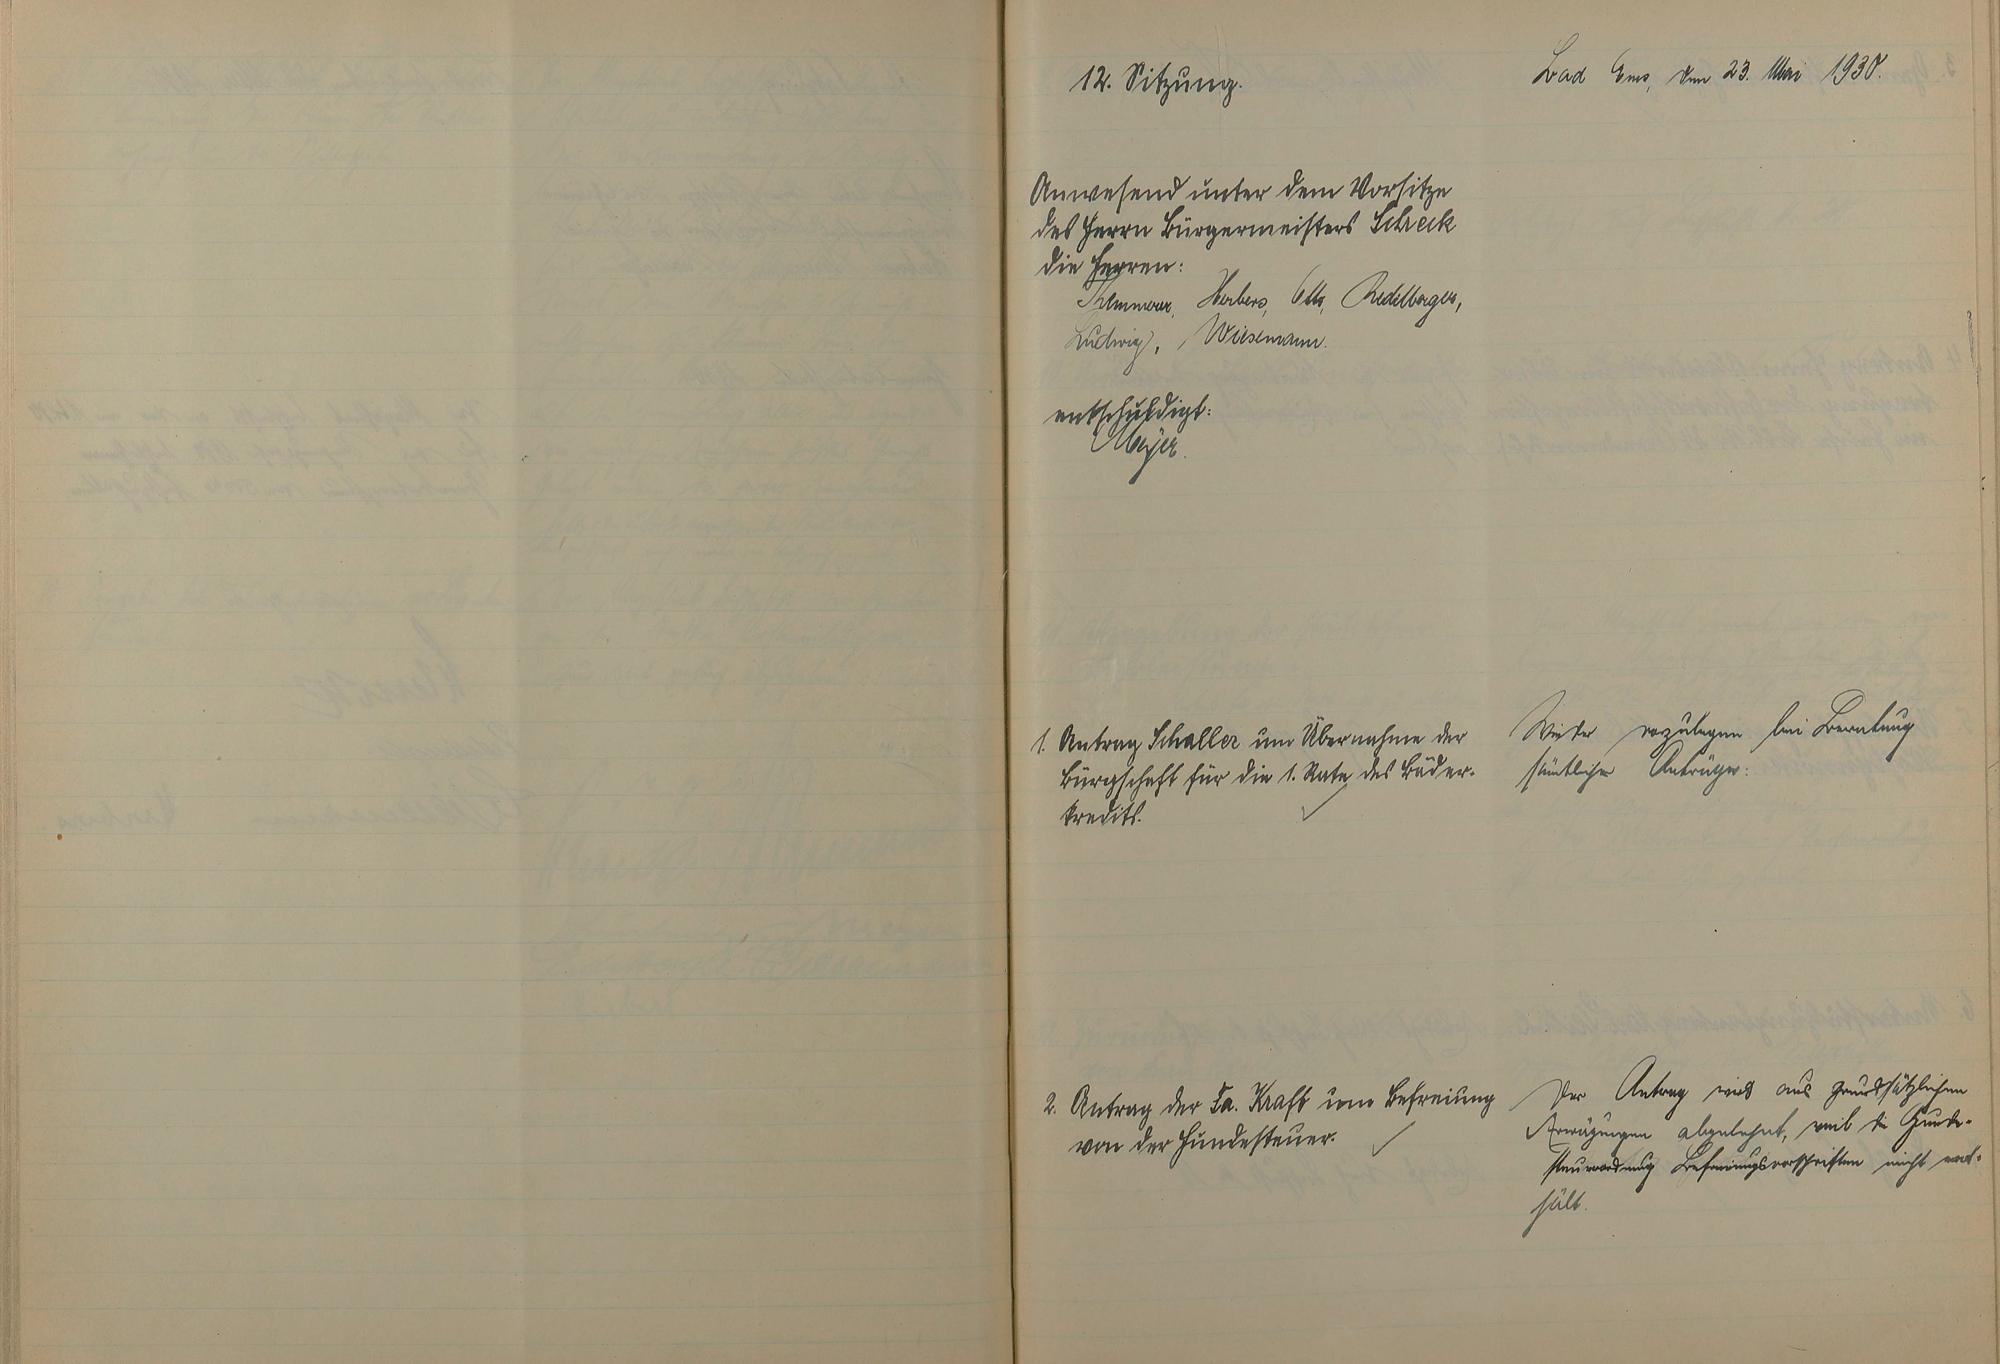 12. Sitzung.
Bad Ems, den 23. Mai 1930.
Anwesend unter dem Vorsitze
des Herrn Bürgermeisters Schreck
die Herren:
Herbers, Otto, Redelberger,
Ludwig, Wiesemann.
entschuldigt:
Meyer.
1. Antrag Schaller um Übernahme der
Bürgschaft für die 1. Rate des Bäder-
kredits.
Wieder vorzulegen bei Beratung
sämtlicher Anträge.
2. Antrag der Fa. Kraft um Befreiung
von der Hundesteuer.
Der Antrag wird aus grundsätzlichen
Erwägungen abgelehnt, weil die Hunde-
steuerordnung Befreiungsvorschriften nicht ent-
hält.